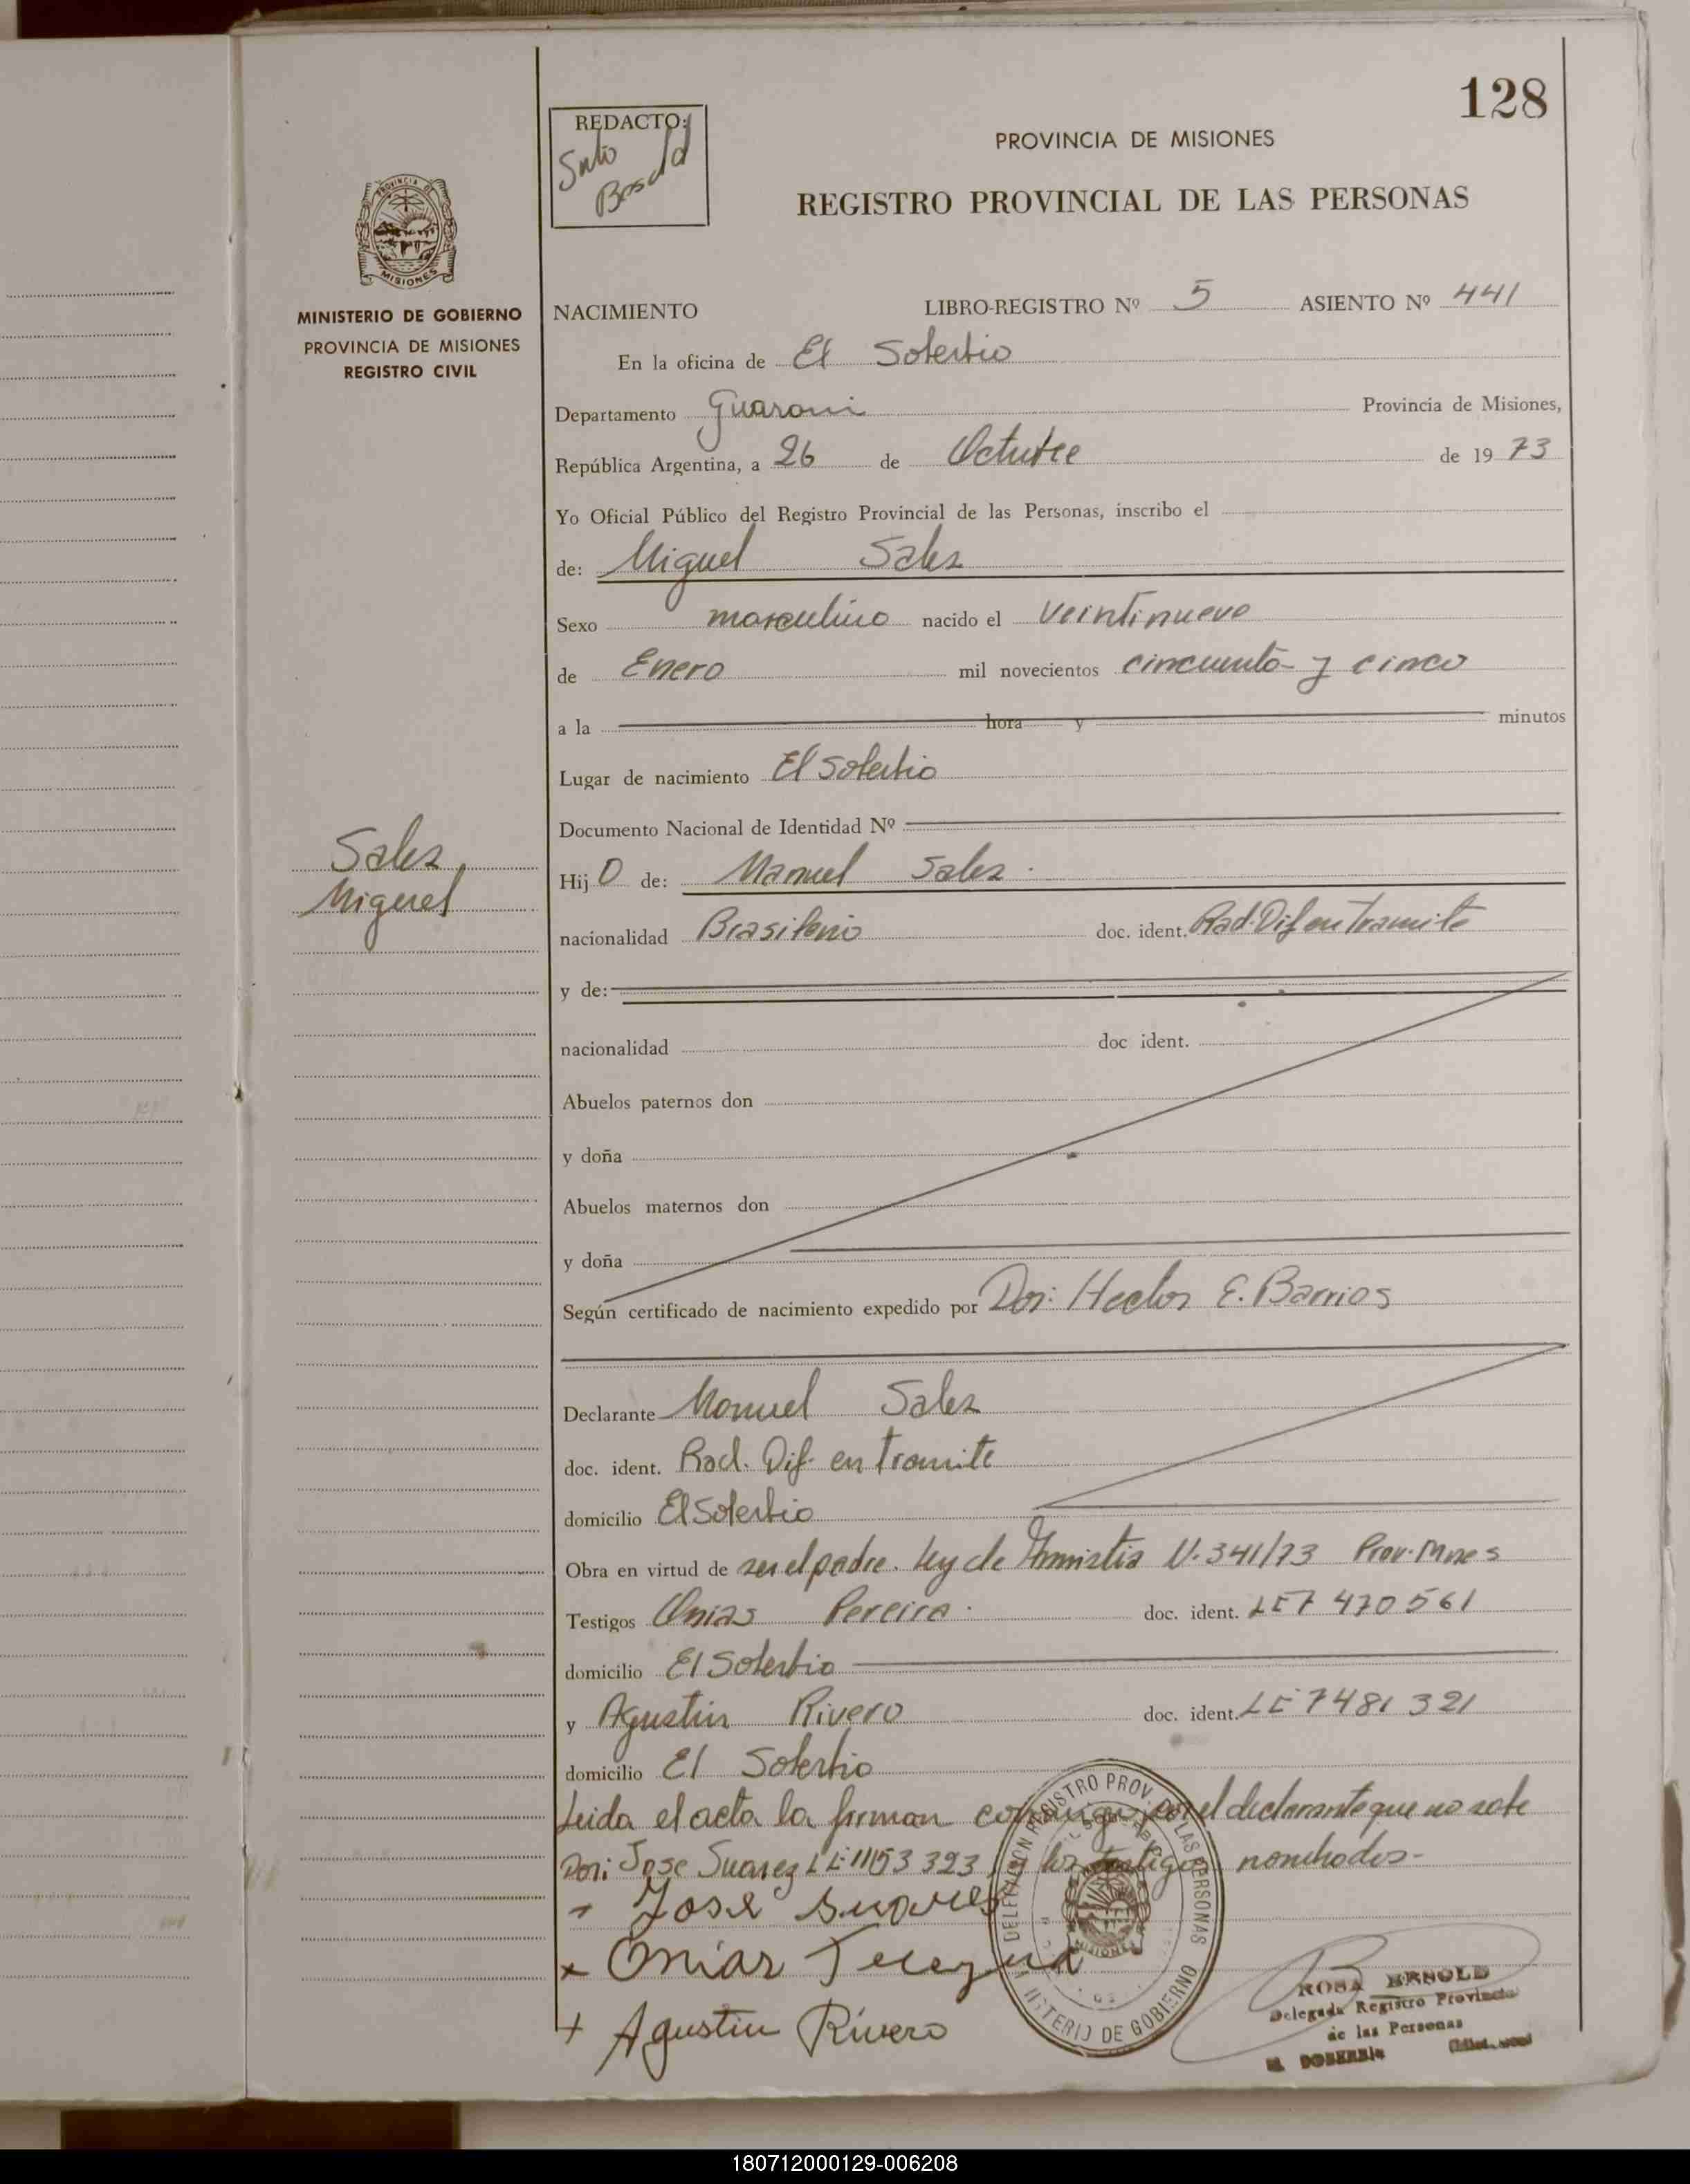 128
REDACTO:
PROVINCIA DE MISIONES
REGISTRO PROVINCIAL DE LAS PERSONAS
PROVINCIA DE
MISIONES
MINISTERIO DE GOBIERNO
PROVINCIA DE MISIONES
REGISTRO CIVIL
NACIMIENTO LIBRO-REGISTRO Nº 5 ASIENTO Nº 441
En la oficina de El Soberbio
Departamento Guarani Provincia de Misiones,
República Argentina, a 26 de Octubre de 1973
Yo Oficial Público del Registro Provincial de las Personas, inscribo el
de: Miguel Sales
Sexo masculino nacido el veintinueve
de Enero mil novecientos cincuenta y cinco
a la hora y minutos
Lugar de nacimiento El Soberbio
Documento Nacional de Identidad Nº
Sales
Miguel
Hijo de: Manuel Sales
nacionalidad Brasileño doc. ident. Rad. Dif en tramite
y de:
nacionalidad doc ident.
Abuelos paternos don
y doña
Abuelos maternos don
y doña
Según certificado de nacimiento expedido por Dor: Hector E. Barrios
Declarante Manuel Sales
doc. ident. Rad. Dif. en tramite
domicilio El Soberbio
Obra en virtud de ser el padre. Ley de Amnistia N. 341/73 Prov. Mnes
Testigos Onias Pereira. doc. ident. LE 7 470 561
domicilio El Soberbio
y Agustin Rivero doc. ident. LE 7481 321
domicilio El Soberbio
Leida el acta la firman conmigo por el declarante que no sabe
Don: Jose Suarez LE 1153 323 y los testigos nombrados-
- Jose Suares
x Onias
+ Agustin Rivero
DELEGACION REGISTRO PROV. DE LAS PERSONAS
MINISTERIO DE GOBIERNO
MISIONES
ROSA ARNOLD
Delegada Registro Provincial
de las Personas
EL SOBERBIO
180712000129-006208